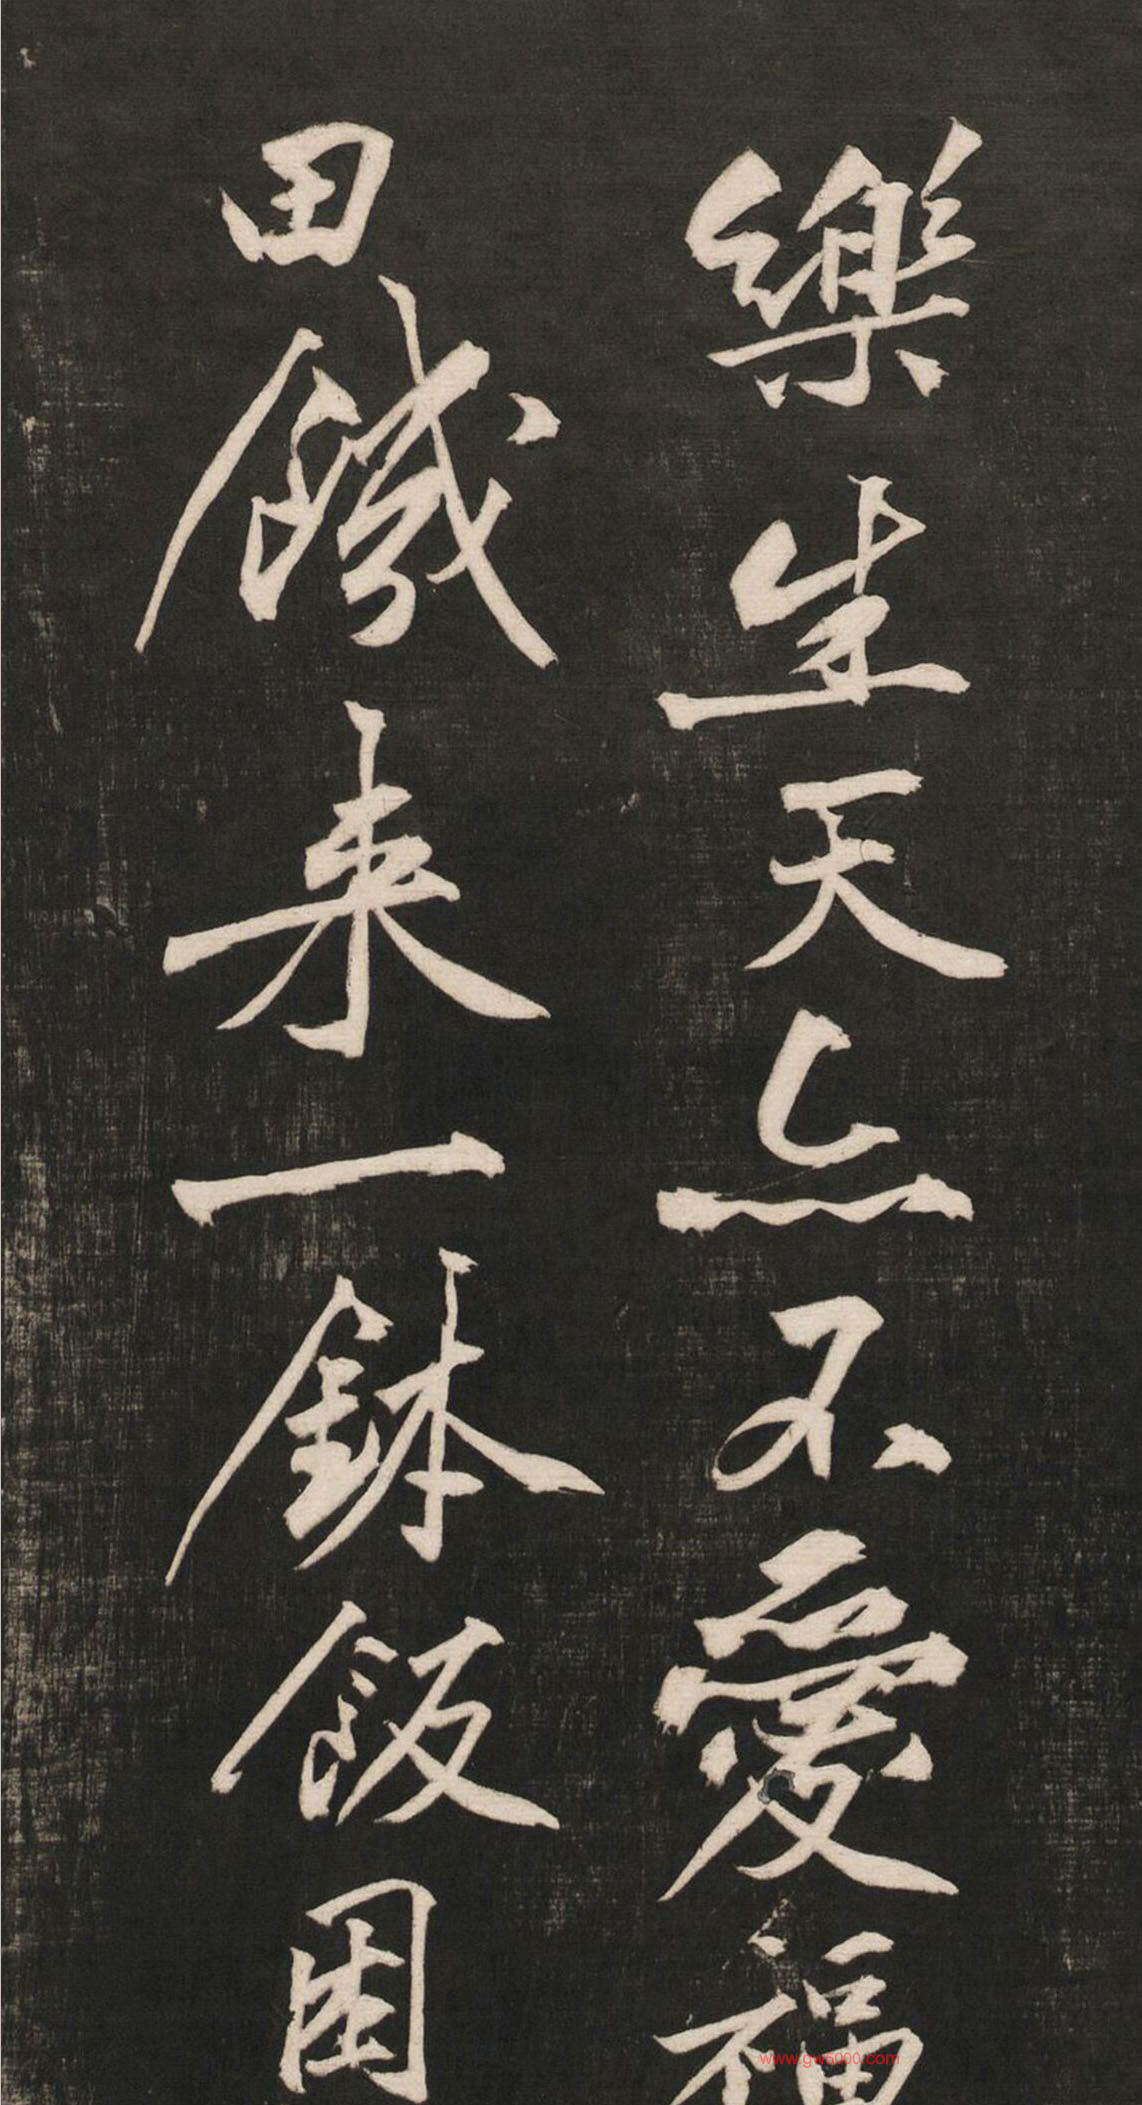 樂生天亦不愛福
田饑來一鉢飯困
www.gw5000.com